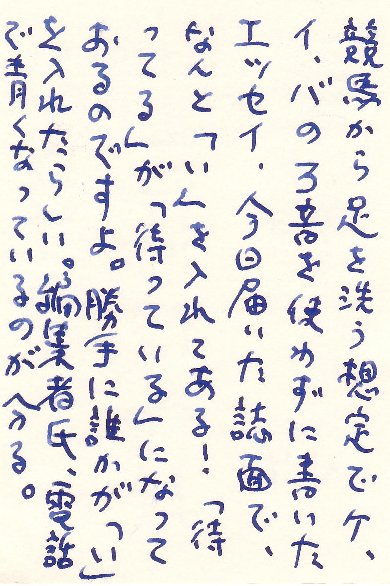 競馬から足を洗う想定でケ、
イ、バの3音を使わずに書いた
エッセイ、今日届いた誌面で、
なんと「い」を入れてある!「待
ってる」が「待っている」になって
おるのですよ。勝手に誰かが「い」
を入れたらしい。編集者氏、電話
で青くなっているのが分る。